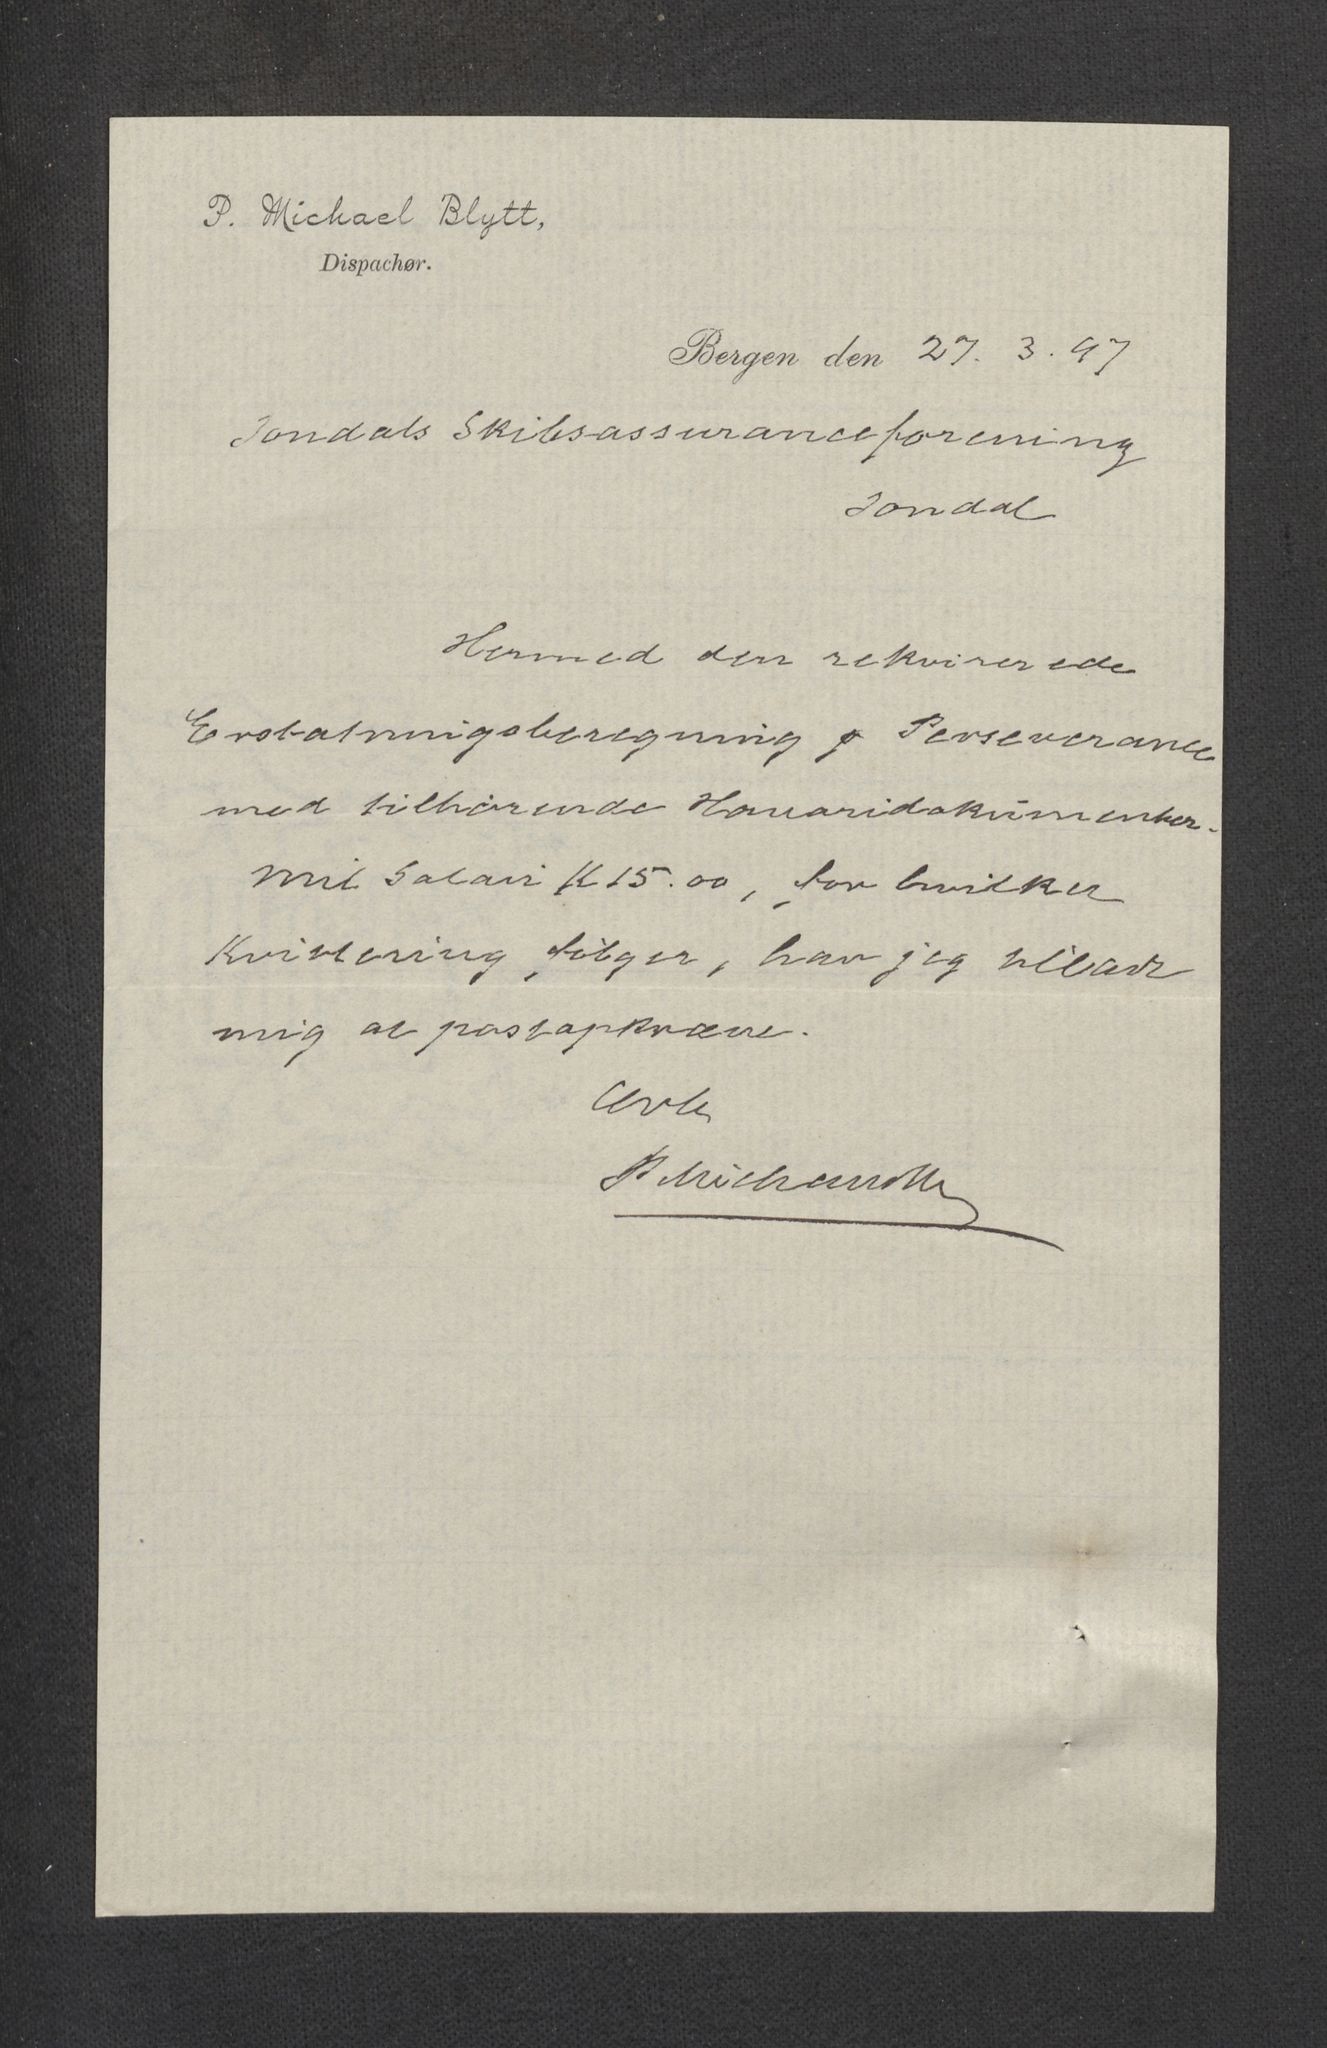 P. Michael Blytt,
Dispachør.
Bergen den 27. 3. 97
Jondals Skibsassuranceforening
Jondal
Hermed den rekvirerede
Erstatningsberegning p Perseverance
med tilhørende Havaridokumenter.
Mit Salair K 15.00, for hvilket
Kvittering følger, har jeg tilladt
mig at postopkræve.
Ærb.
P Michael Blytt